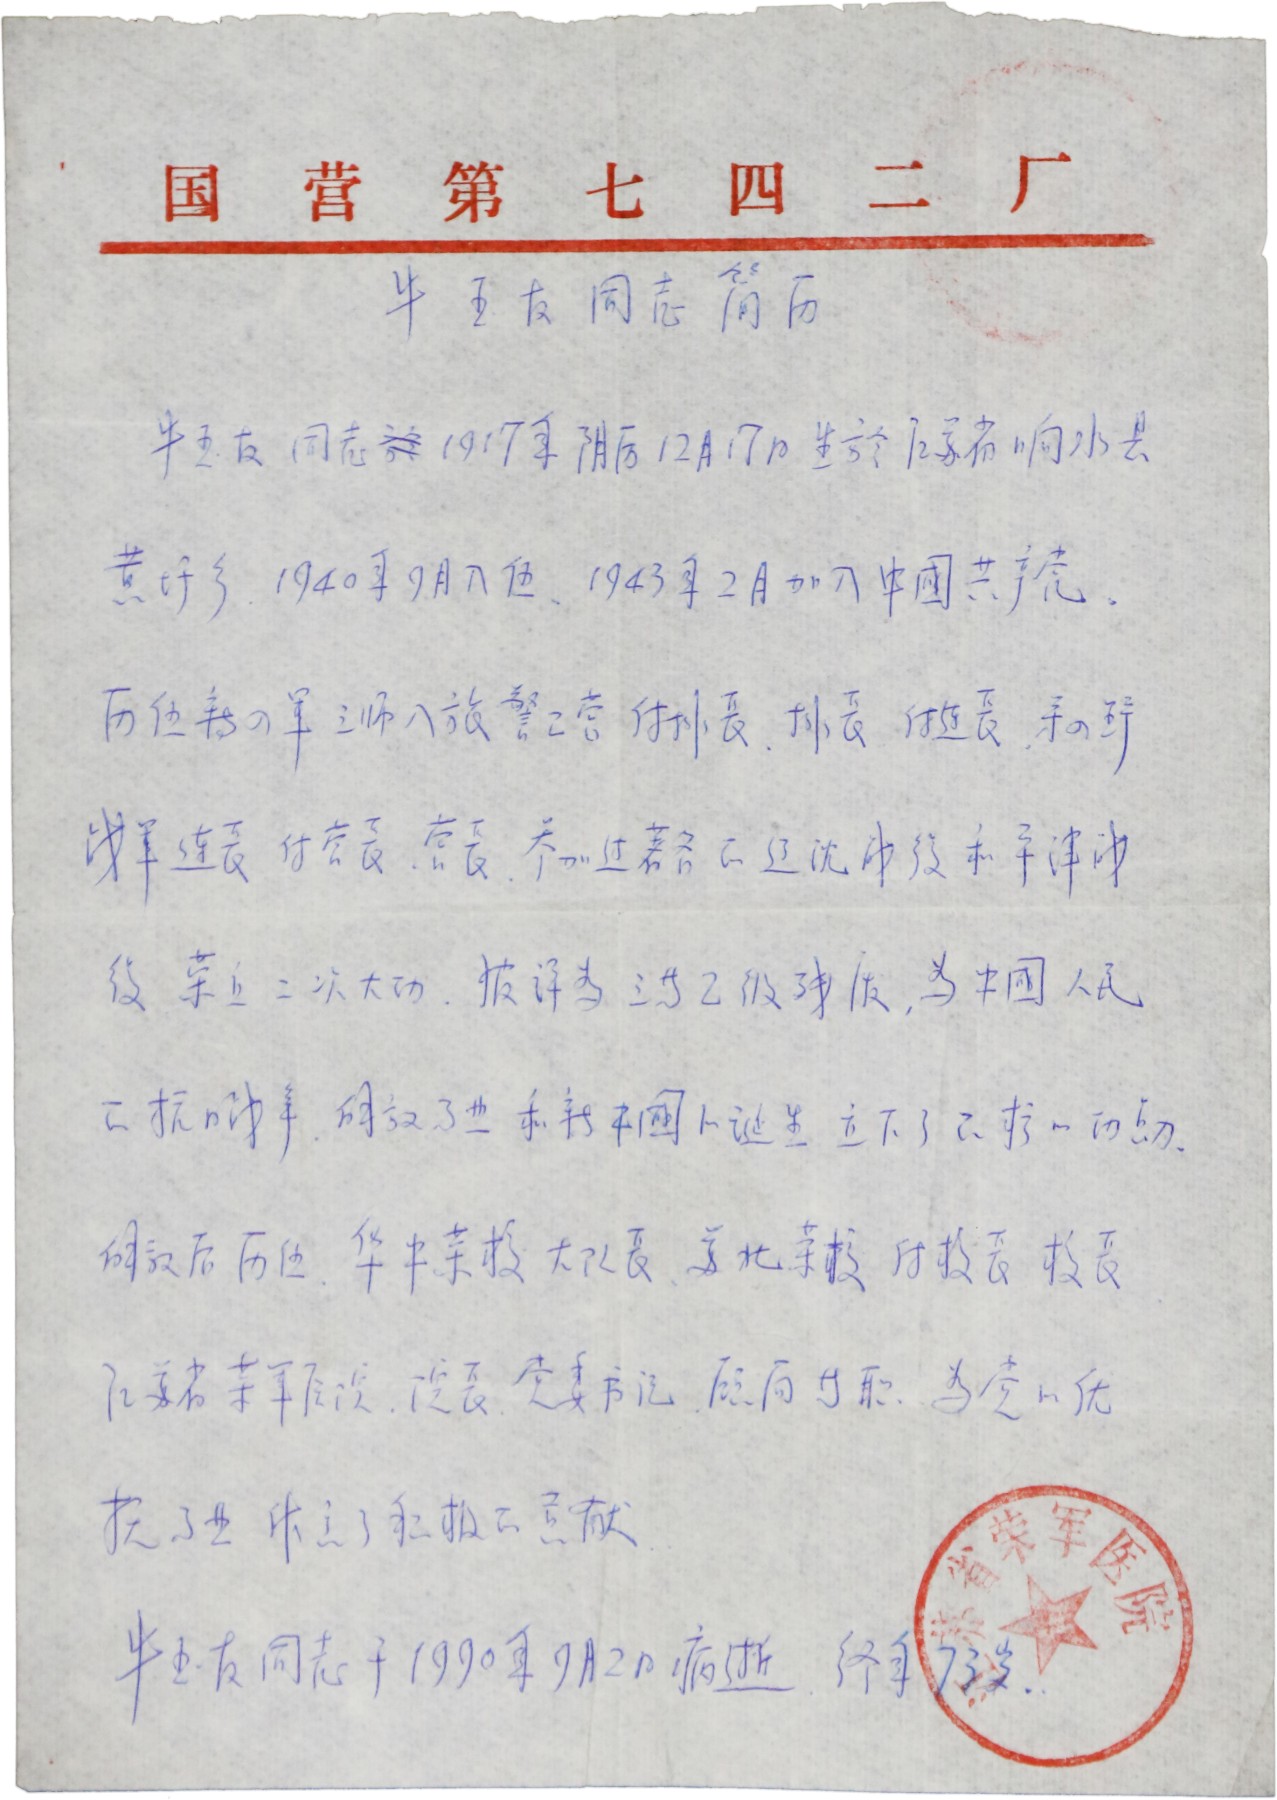 国营第七四二厂
牛玉友同志简历
牛玉友同志 1917年阴历12月17日生於江苏省响水县
黄圩乡、1940年9月入伍、1943年2月加入中國共产党。
历任新四军三师八旅警二营付排长、排长、付连长、东四野
战军连长、付营长、营长、参加过著名的辽沈战役和平津战
役、荣立二次大功、被评为三等乙级残废,为中國人民
的抗日战争、解放事业和新中國的诞生立下了不朽的功勋、
解放后历任、华中荣校大队长、苏北荣校付校长、校长
江苏省荣军医院、院长、党委书记、顾问等职、为党的优
抚事业作出了积极的贡献
牛玉友同志于1990年9月2日病逝、终年73岁..
江苏省荣军医院